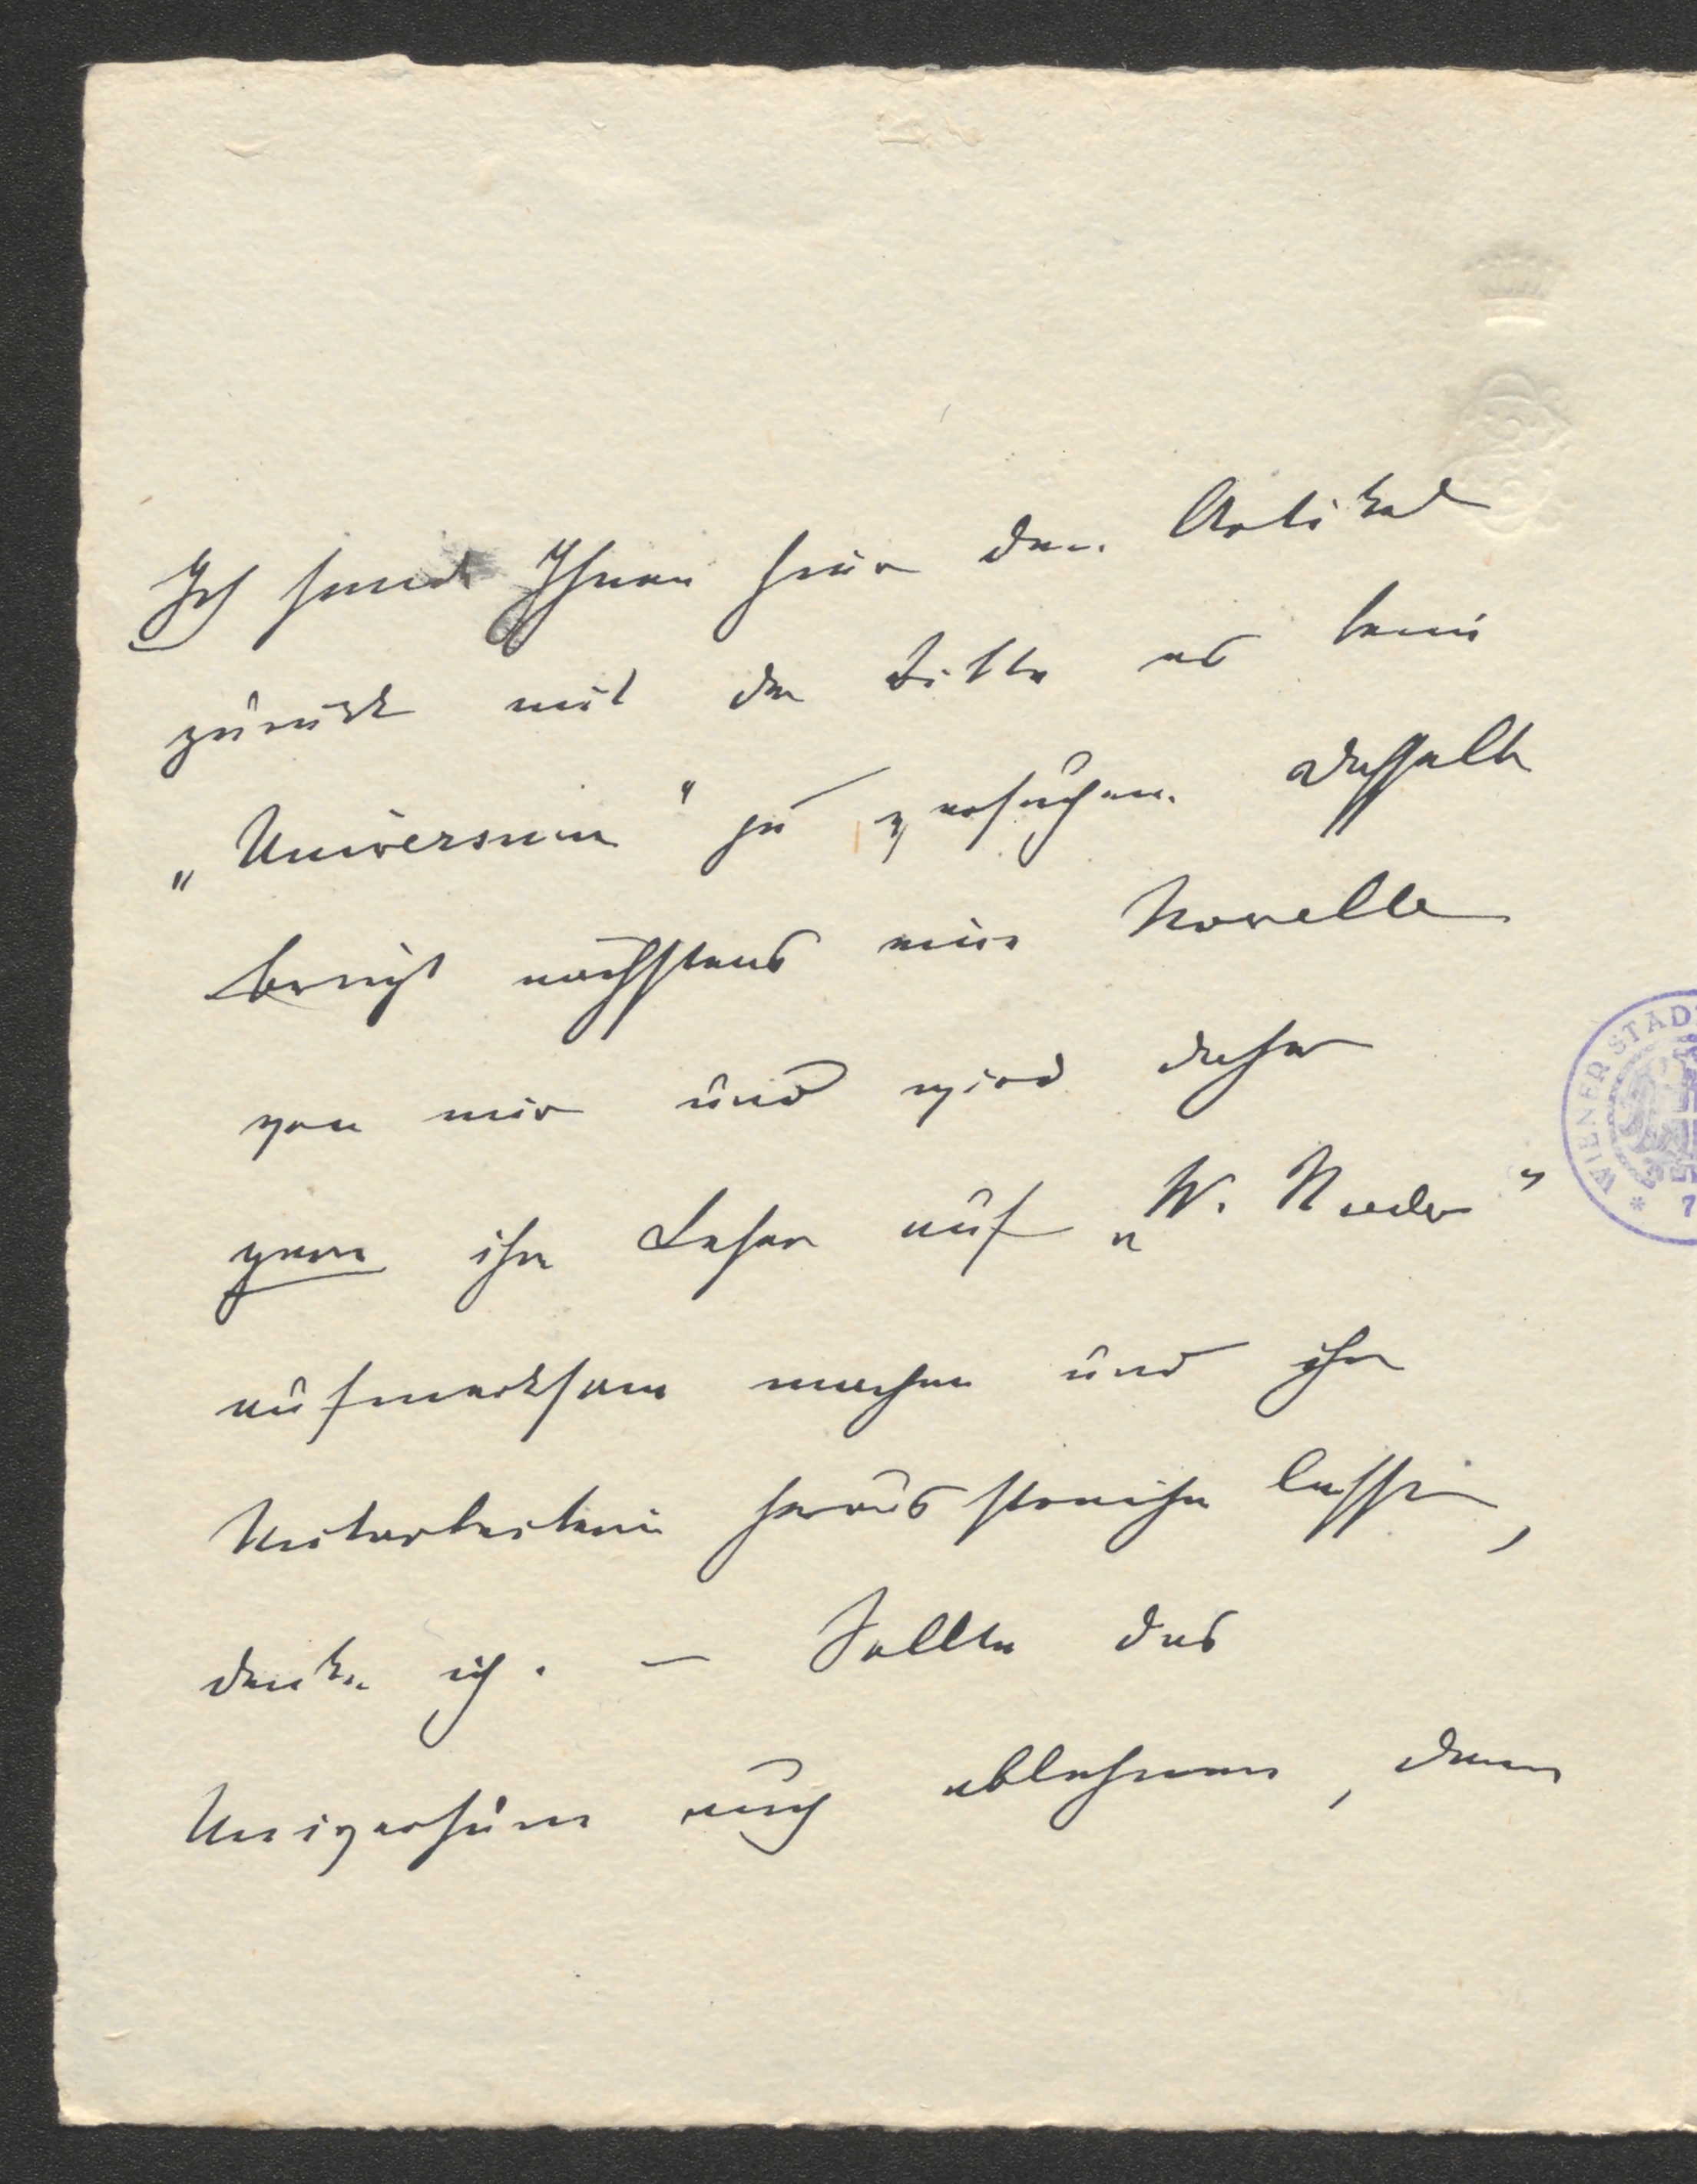 Ich sende Ihnen hier den Artikel
zurück mit der Bitte es beim
„Universum" zu versuchen. Dasselbe
bringt nächstens eine Novelle
von mir und wird daher
gern ihre Leser auf „W. N
aufmerksam machen und ihre
Mitarbeiterin herausstreichen lassen,
denke ich. — Sollte das
Universum auch ablehnen, dann
WIENER STAD
* 7